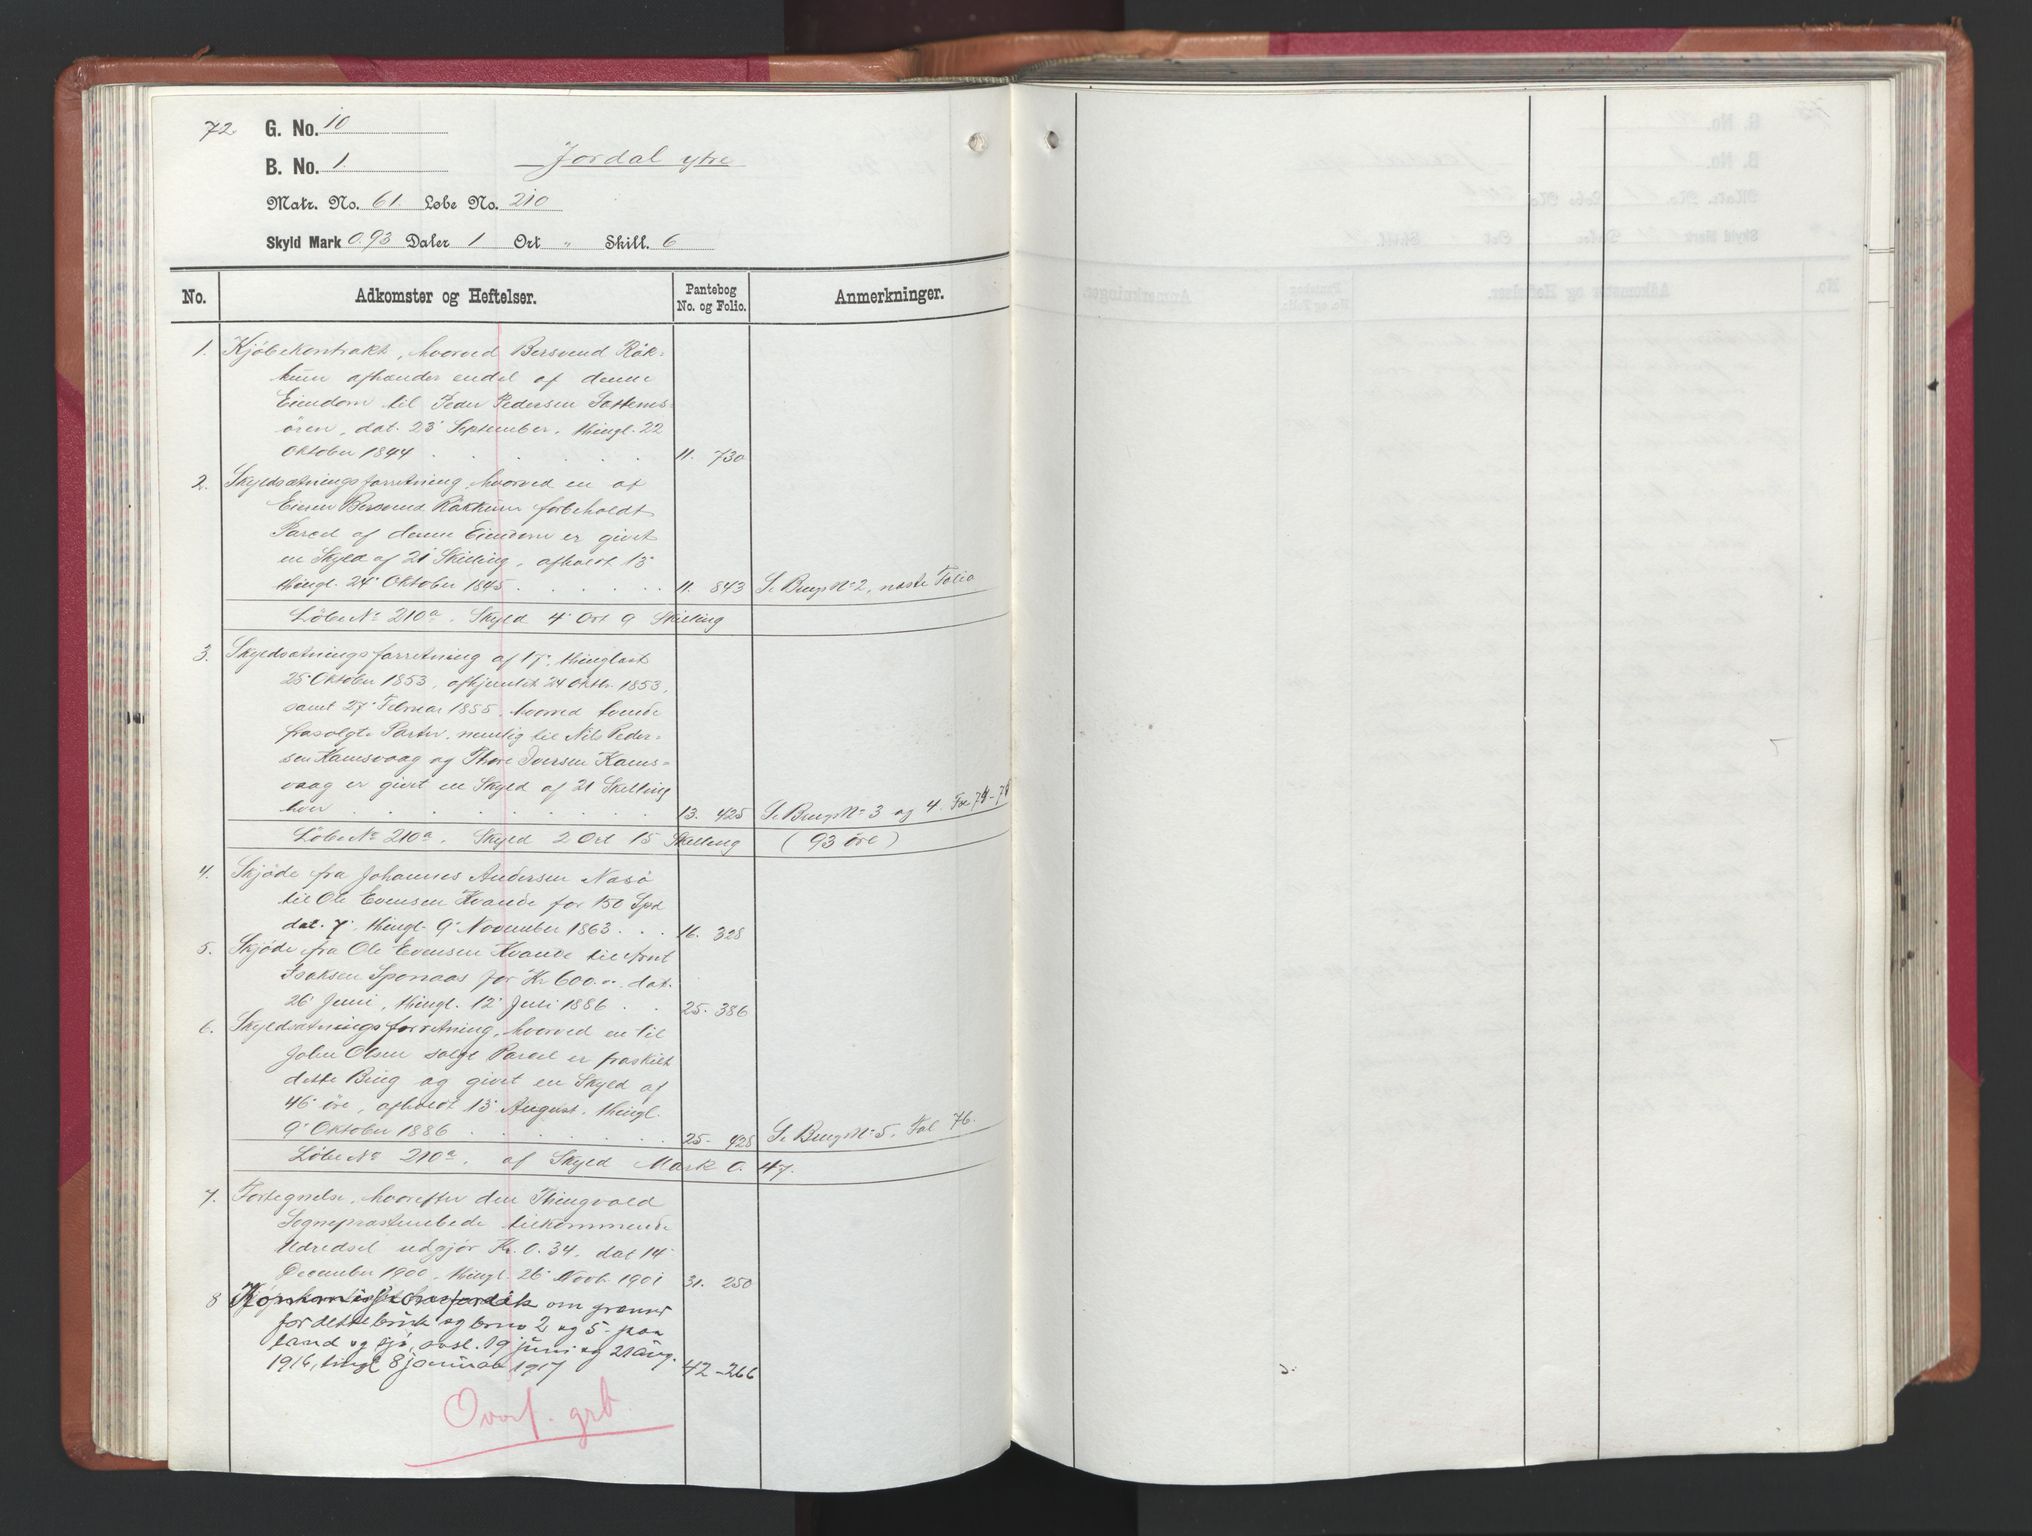 72. G. No. 10
B. No. 1. Jordal ytre
Matr. No. 61. Løbe No. 210
Skyld Mark 0.93 Daler 1 Ort " Skill. 6
No. Adkomster og Heftelser. Pantebog No. og Folio. Anmerkninger.
1. Kjöbekontrakt, hvorved Bersvend Røk-
kum afhænder endel af denne
Eiendom til Peder Pedersen
ören, dat. 23 September, thingl. 22
Oktober 1844 . . . . . 11. 730
2. Skyldsætningsforretning, hvorved en af
Eieren Bersvend Røkkum forbeholdt
Parcel af denne Eiendom er givet
en Skyld af 21 Skilling, afholdt 13
thingl. 24 Oktober 1845 . . . . . 11. 843 Se Brugs No 2, næste Folio
Löbe No 210a. Skyld 4 Ort 9 Skilling
3. Skyldsætningsforretning af 17, thinglæst
25 Oktober 1853, afhjemlet 24 Oktbr. 1853,
samt 27 Februar 1855, hvorved tvende
frasolgte Parter, nemlig til Nils Peder-
sen Kamsvaag og Thore Iversen Kams-
vaag er givet en Skyld af 21 Skilling
hver . . . . . . 13. 425 Se Brugs No 3 og 4. Fol 74-
Löbe No 210a. Skyld 2 Ort 15 Skilling (93 öre)
4. Skjöde fra Johannes Andersen Nasö
til Ole Evensen Kvande for 150 Spd
dat. 7, thingl. 9 November 1863 . . . 16. 328
5. Skjöde fra Ole Evensen Kvande til Arnt
Isaksen Sponaas for Kr 600.00, dat.
26 Juni, thingl. 12 Juli 1886 . . 25. 386
6. Skyldsætningsforretning, hvorved en til
John Olsen solgt Parcel er fraskilt
dette Brug og givet en Skyld af
46 öre, afholdt 13 August, thingl.
9 Oktober 1886 . . . . . 25. 428 Se Brugs No 5, Fol 76.
Löbe No 210a. af Skyld Mark 0.47.
7. Fortegnelse, hvorefter den Thingvold
Sognepræstembede tilkommende
Udredsel udgjør Kr. 0.34, dat 14
December 1900, thingl. 26 Novb. 1901 31. 250
8 om grænser
for dette bruk og brno 2 og 5 paa
land og sjö, avsl. 19 juni og 21 aug.
1916, tingl 8 januar 1917 42-266
Overf. grb.